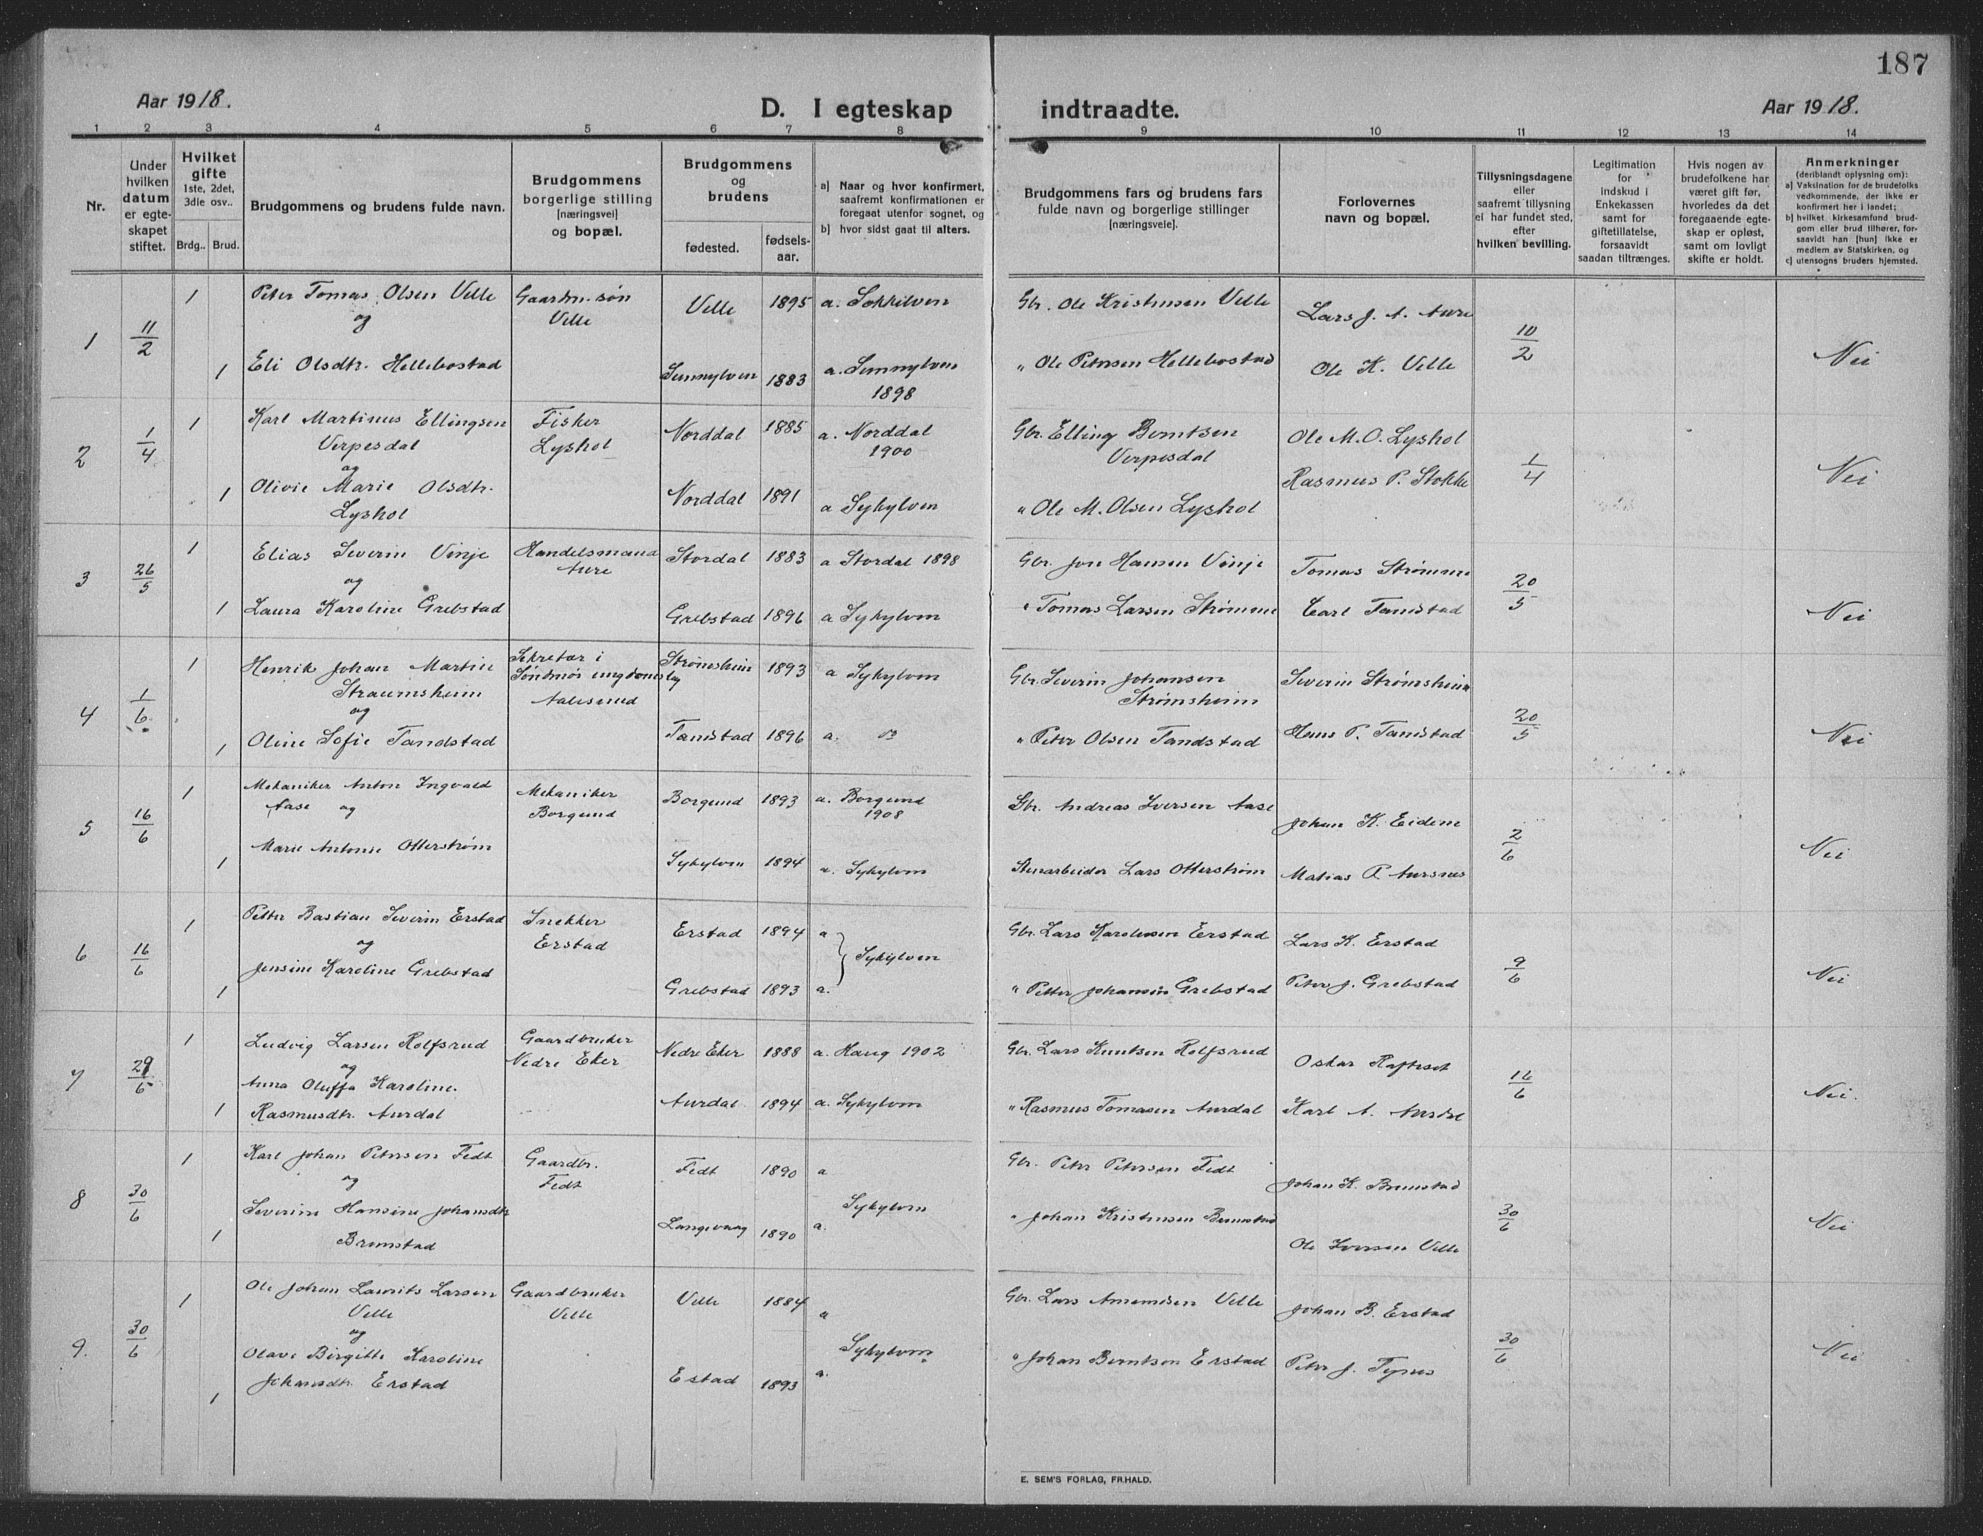 187
Aar 1918.
D. I egteskap indtraadte.
Aar 1918.
1 2 3 4 5 6 7 8 9 10 11 12 13 14
Nr.
Under hvilken datum er egte-skapet stiftet.
Hvilket gifte
1ste, 2det, 3die osv..
Brdg.. Brud.
Brudgommens og brudens fulde navn.
Brudgommens borgerlige stilling [næringsvei] og bopæl.
Brudgommens og brudens
fødested. fødsels-aar.
a) Naar og hvor konfirmert, saafremt konfirmationen er foregaat utenfor sognet, og
b) hvor sidst gaat til alters.
Brudgommens fars og brudens fars fulde navn og borgerlige stillinger [næringsveie].
Forlovernes navn og bopæl.
Tillysningsdagene eller saafremt tillysning ei har fundet sted, efter hvilken bevilling.
Legitimation for indskud i Enkekassen samt for giftetillatelse, forsaavidt saadan tiltrænges.
Hvis nogen av brudefolkene har været gift før, hvorledes da det foregaaende egte-skap er opløst, samt om lovligt skifte er holdt.
Anmerkninger (deriblandt oplysning om):
a) Vaksination for de brudefolks vedkommende, der ikke er konfirmert her i landet;
b) hvilket kirkesamfund brud-gom eller brud tilhører, for-saavidt han [hun] ikke er medlem av Statskirken, og
c) utensogns bruders hjemsted.
1 11/2 1 Peter Tomas Olsen Velle Gaardm. søn Velle Velle 1895 a. Søkkilven Gbr. Ole Kristensen Velle Lars J. A. Aure 10/2 Nei
og
1 Eli Olsdtr. Hellebostad Sunnylven 1883 a. Sunnylven 1898 " Ole Petersen Hellebostad Ole K. Velle
2 1/4 1 Karl Martinus Ellingsen Verpesdal Fisker Lyshol Norddal 1885 a. Norddal 1900 Gbr. Elling Berntsen Verpesdal Ole M. O. Lyshol 1/4 Nei
og
1 Olivie Marie Olsdtr. Lyshol Norddal 1891 a Sykylven " Ole M. Olsen Lyshol Rasmus P. Stokke
3 26/5 1 Elias Severin Vinje Handelsmand Aure Stordal 1883 a Stordal 1898 Gbr. Jon Hansen Vinje Tomas Strømme 20/5 Nei
og
1 Laura Karoline Grebstad Grebstad 1896 a Sykylven " Tomas Larsen Strømme Carl Tandstad
4 1/6. 1 Henrik Johan Martin Straumsheim Sekretær i Søndmør ungdomslag Aalesund Strømsheim 1893 a Sykylven Gbr. Severin Johansen Strømsheim Severin Strømsheim 20/5 Nei
og
1 Oline Sofie Tandstad Tandstad 1896 a. " Peter Olsen Tandstad Hans P. Tandstad
5 16/6 1 Mekaniker Anton Ingvald Aase og Mekaniker Borgund Borgund 1893 a. Borgund 1908 Gbr. Andreas Iversen Aase Johan K. Eidem 2/6 Nei
1 Marie Antonie Otterstrøm Sykylven 1894 a. Sykylven Stenarbeider Lars Otterstrøm Matias P. Aursnes
6 16/6 1 Petter Bastian Severin Erstad Snekker Erstad Erstad 1894 a Sykylven Gbr. Lars Karolusen Erstad Lars K. Erstad 9/6 Nei
og
1 Jensine Karoline Grebstad Grebstad 1893 a. " Petter Johansen Grebstad Peter J. Grebstad
7 29/6 1 Ludvig Larsen Rolfsrud Gaardbruker Nedre Eker Nedre Eker 1888 a. Haug 1902 Gbr. Lars Knutsen Rolfsrud Oskar Rafteset 16/6 Nei.
og
1 Anna Oluffa Karoline. Rasmusdtr. Aurdal Aurdal 1894 a. Sykylven " Rasmus Tomasen Aurdal Karl A. Aurdal
8 30/6 1 Karl Johan Petersen Fedt Gaardbr. Fedt Fedt 1890 a Sykylven Gbr. Peter Petersen Fedt Johan K. Brunstad 30/6 Nei
og
1 Severine Hansine Johansdtr Brunstad Langevaag 1890 a. " Johan Kristensen Brunstad Ole Iversen Velle
9. 30/6 1 Ole Johan Laurits Larsen Velle Gaardbruker Velle Velle 1884 a Sykylven Gbr. Lars Amundsen Velle Johan B. Erstad 30/6 Nei
og
1 Olave Birgitte Karoline Johansdtr. Erstad Estad 1893 a. " Johan Berntsen Erstad Peter J. Tynes
E. SEM'S FORLAG, FR.HALD.